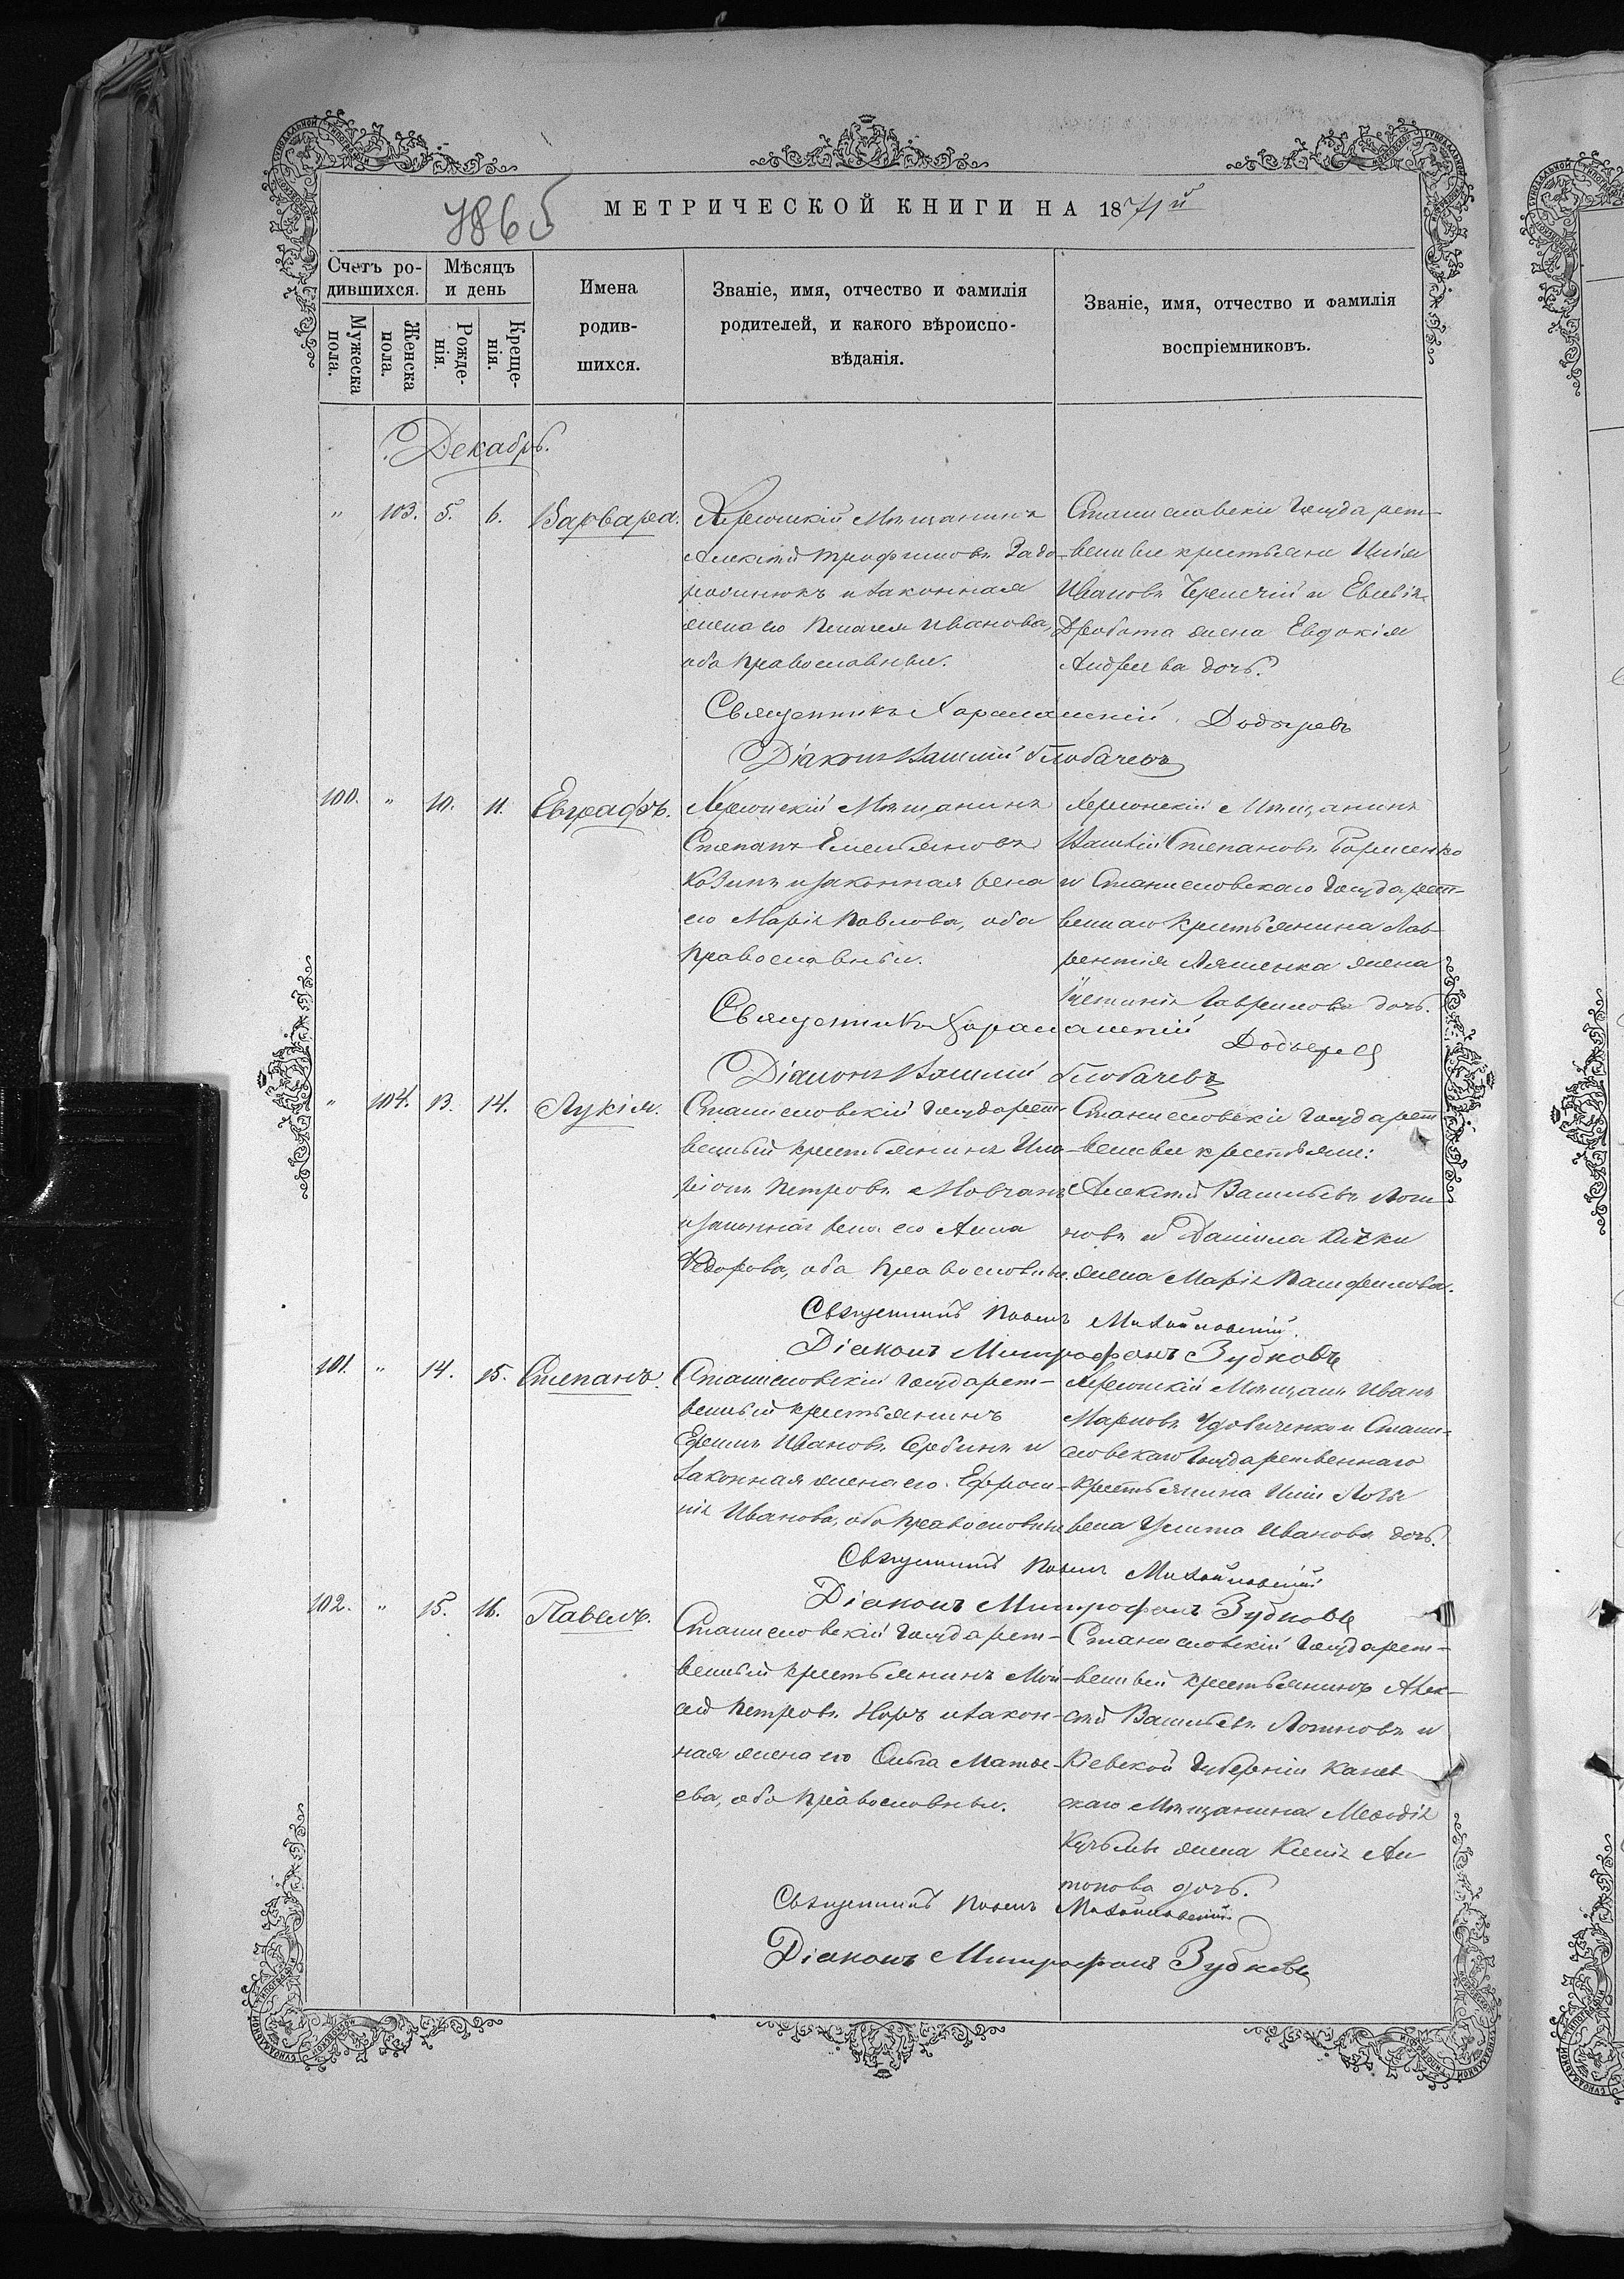 7865
МЕТРИЧЕСКОЙ КНИГИ НА 1871й
Счетъ ро-
дившихся.
Мѣсяцъ
и день
Мужеска
пола.
Женска
пола.
Рожде-
нія.
Креще-
нія.
Имена
родив-
шихся.
Званіе, имя, отчество и фамилія
родителей, и какого вѣроиспо-
вѣданія.
Званіе, имя, отчество и фамилія
воспріемниковъ.
Декабрь.
" 103. 5. 6. Варвара.
Херсонскій Мѣщанинъ
Алексѣй Трофимовъ
и законная
жена его Пелагея Иванова,
оба православные.
Станиславскіе Государст-
венные крестьяне Илія
Ивановъ и Евсевія
Дробота жена Евдокія
Андреева дочь.
Священникъ
Діаконъ Василій Глобачевъ
100. " 10. 11. Евграфъ.
Херсонскій Мѣщанинъ
Степанъ Емельяновъ
Козинъ и законная жена
его Марія Павлова, оба
Православные.
Херсонскій Мѣщанинъ
Василій Степановъ
и Станиславскаго Государст-
веннаго Крестьянина Лав-
рентія Ляшенка жена
Устинія Гаврилова дочь.
Священникъ
Діаконъ Василій Глобачевъ
" 104. 13. 14. Лукія.
Станиславскій Государст-
венный крестьянинъ Ила-
ріонъ Петровъ Мовчанъ
и законная жена его Анна
Федорова, оба Православные.
Станиславскіе Государст
венные крестьяне:
Алексѣй Васильевъ Логи-
новъ и Даніила
жена Марія Панфилова.
Священникъ Павелъ Михайловскій.
Діаконъ Митрофанъ Зубковъ
101. " 14. 15. Степанъ.
Станиславскій Государст-
венный крестьянинъ
Ефимъ Ивановъ Сербинъ и
законная жена его Ефроси-
нія Иванова, оба Православные
Херсонскій Мѣщан. Иванъ
Марковъ Удовиченко и Стани-
славскаго Государственнаго
Крестьянина Иліи
жена Улита Иванова дочь.
Священникъ Павелъ Михайловскій
Діаконъ Митрофанъ Зубковъ
102. " 15. 16. Павелъ.
Станиславскій Государст-
венный крестьянинъ Мои-
сей Петровъ Норъ и закон-
ная жена его Ольга Матвѣ-
ева, оба Православные.
Станиславскій Государст-
венный крестьянинъ Алек-
сѣй Васильевъ Логиновъ и
Кіевской Губерніи Канев
скаго Мѣщанина Меѳодія
Кузьмы жена Ксенія Ан
тонова дочь.
Священникъ Павелъ Михайловскій
Діаконъ Митрофанъ Зубковъ